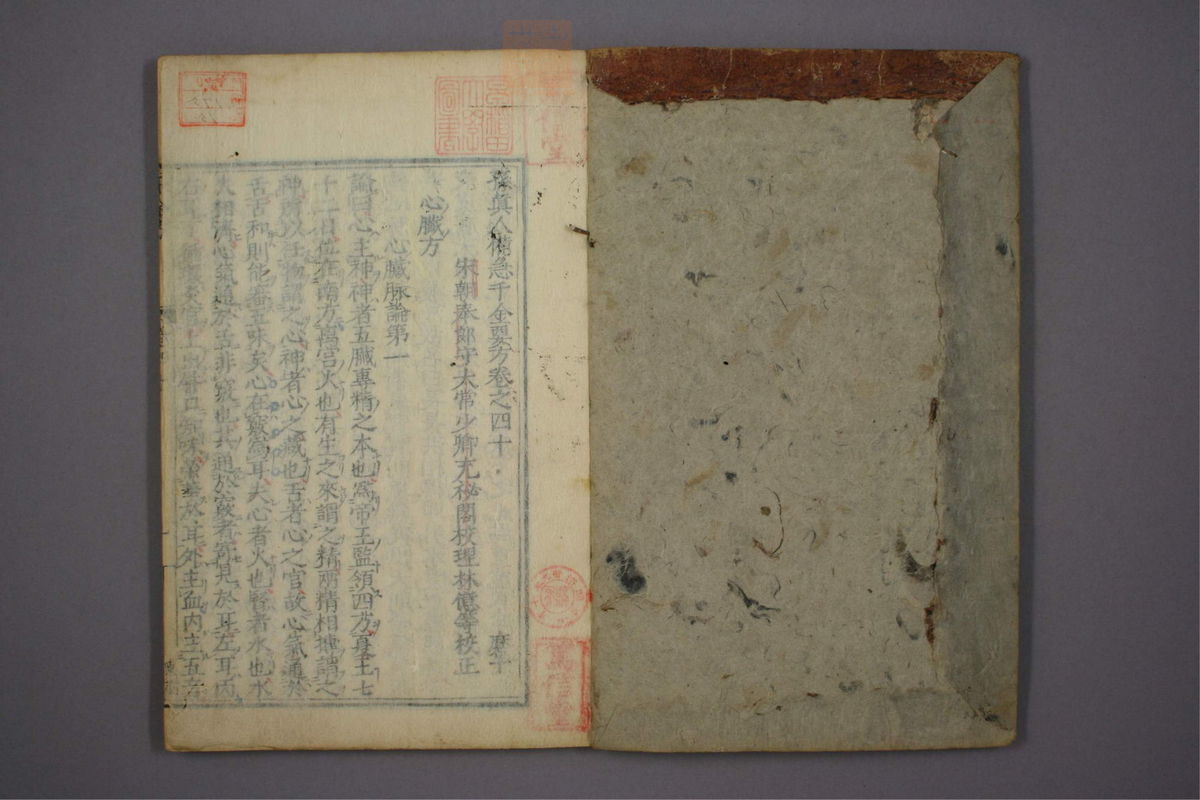 孫真人備急千金要方卷之四十
宋朝奉郎守太常少卿充秘閣校理林億等校正
心臟方
心臟脉論第一
論曰心主神神者五臟專精之本也為帝王監領四方夏王七
十二日位在南方離宮火也有生之來謂之精兩精相搏謂之
神所以任物謂之心神者心之藏也舌者心之官故心氣通於
舌舌和則能審五味矣心在竅為耳夫心者火也腎者水也水
火相濟心氣通於舌非竅也其通於竅者寄見於耳左耳丙
右耳丁循環炎宮上出唇口知味榮華於耳外主血內主五音